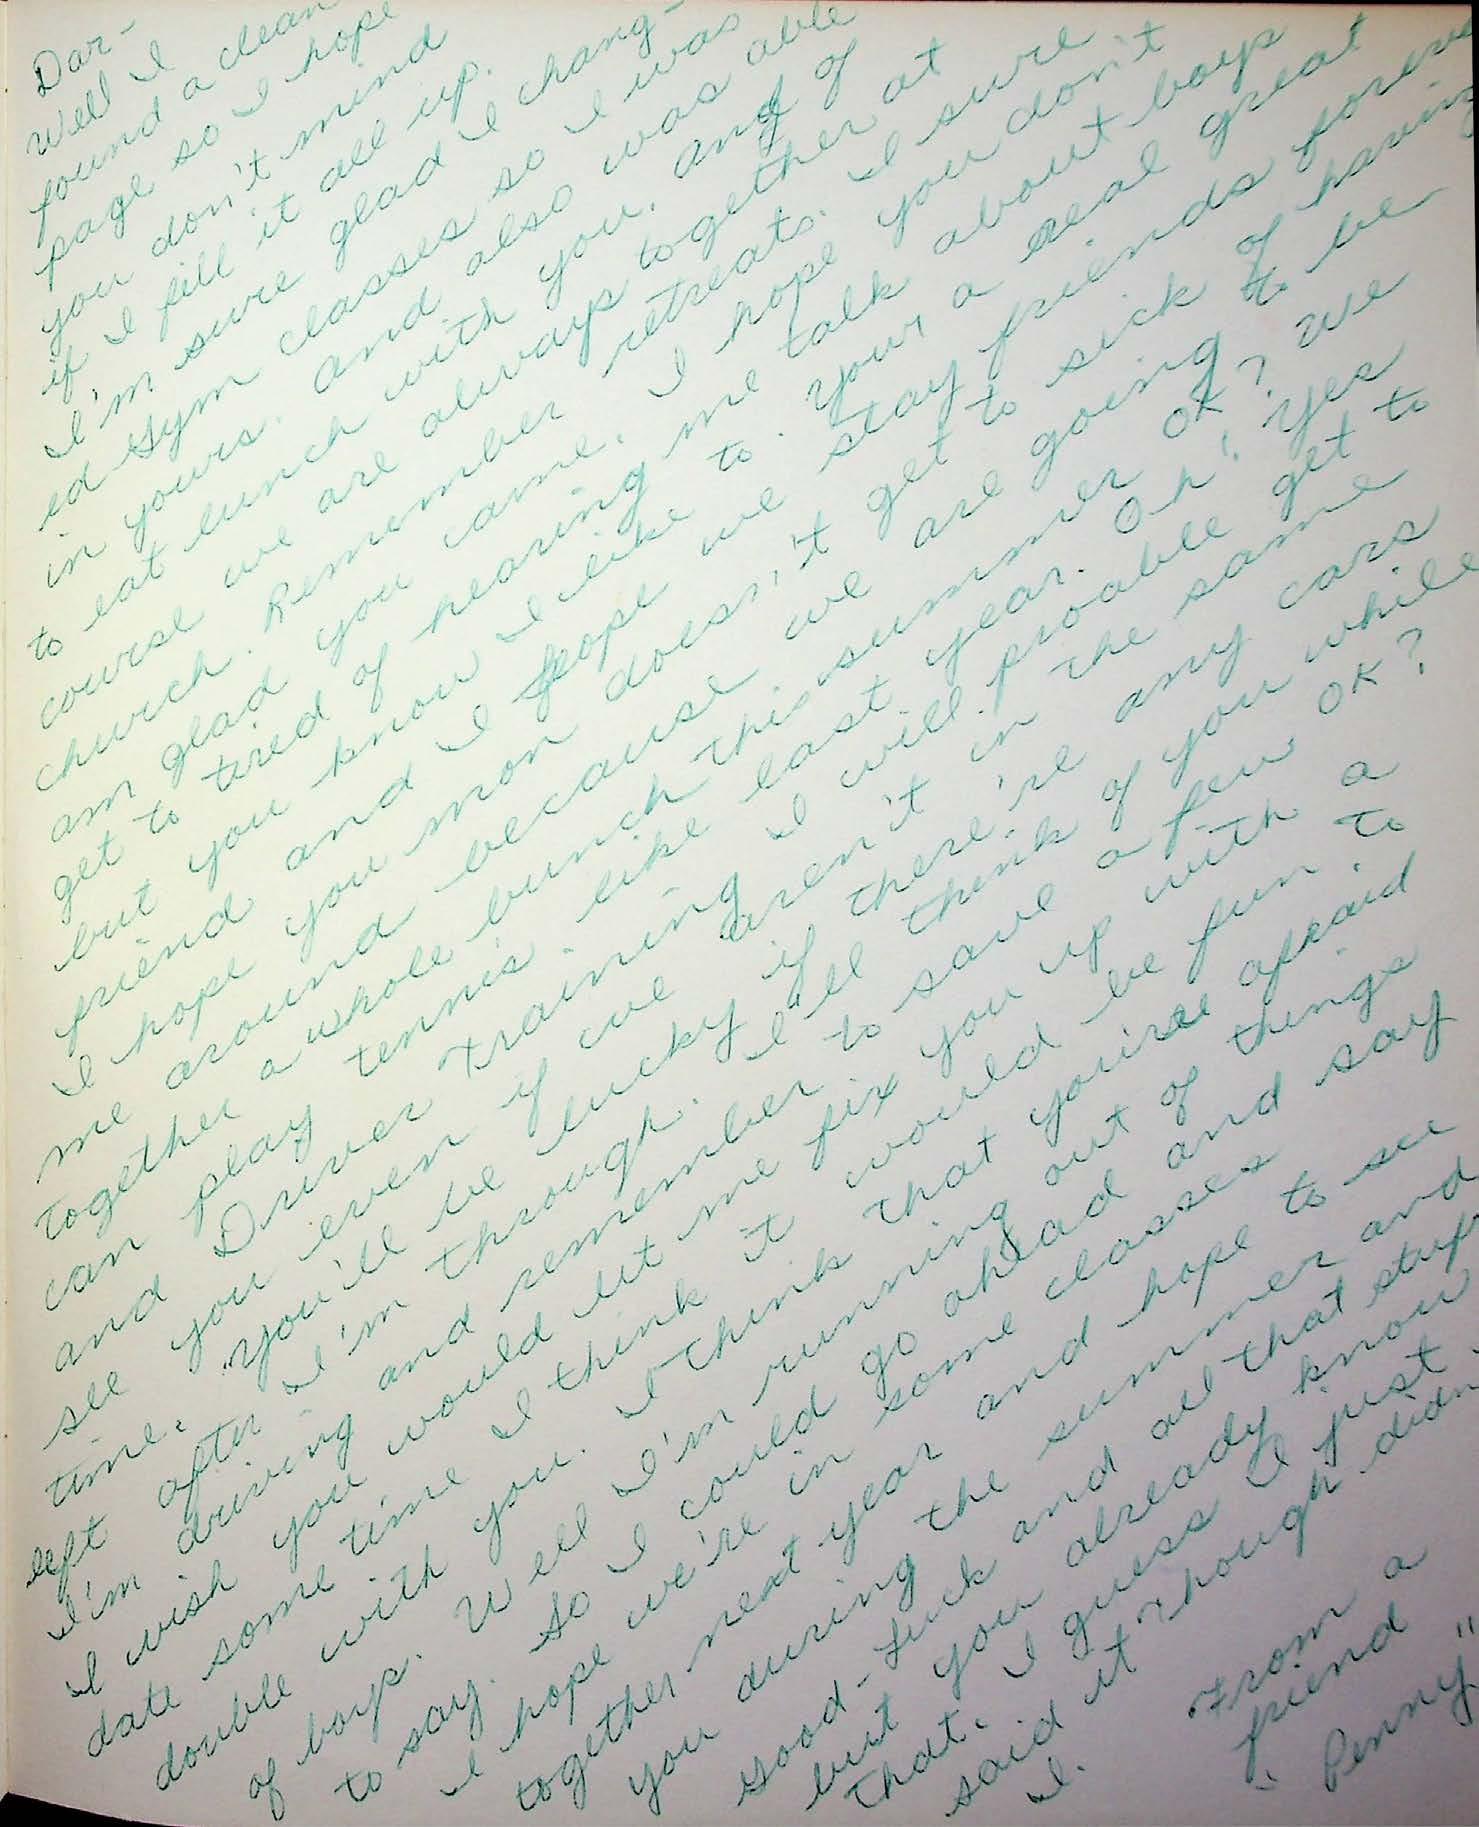 Dar-
Well I
found a clean
page so I hope
you don't mind
if I fill it all up.
I'm sure glad I chang-
ed Gym classes so I was
in yours. and also was able
to eat lunch with you. and of
course we are always together at
church. Remember retreats. I sure
am glad you came. I hope you don't
get to tired of hearing me talk about boys
but you know I like to. Your a real great
friend and I hope we stay friends forever
I hope you mon doesn't get to sick of having
me around because we are going to be
together a whole bunch this summer OK? We
can play tennis. like last year. Oh! Yes
and Driver Training I will proable get to
see you even if we aren't in the same
time. "You'll be lucky if there're any cars
left after I'm through. I'll think of you while
I'm driving and remember to save a few OK?
I wish you would let me fix you up with a
date some time I think it would be fun to
double with you. I think that you're afraid
of boys. Well I'm running out of things
to say. So I could go ahead and say
I hope we're in some classes
together next year and hope to see
you during the summer and
good-luck and all that stuff
but you already know
that. I guess I just
said it though didn
I.
From a
friend
"Penny"